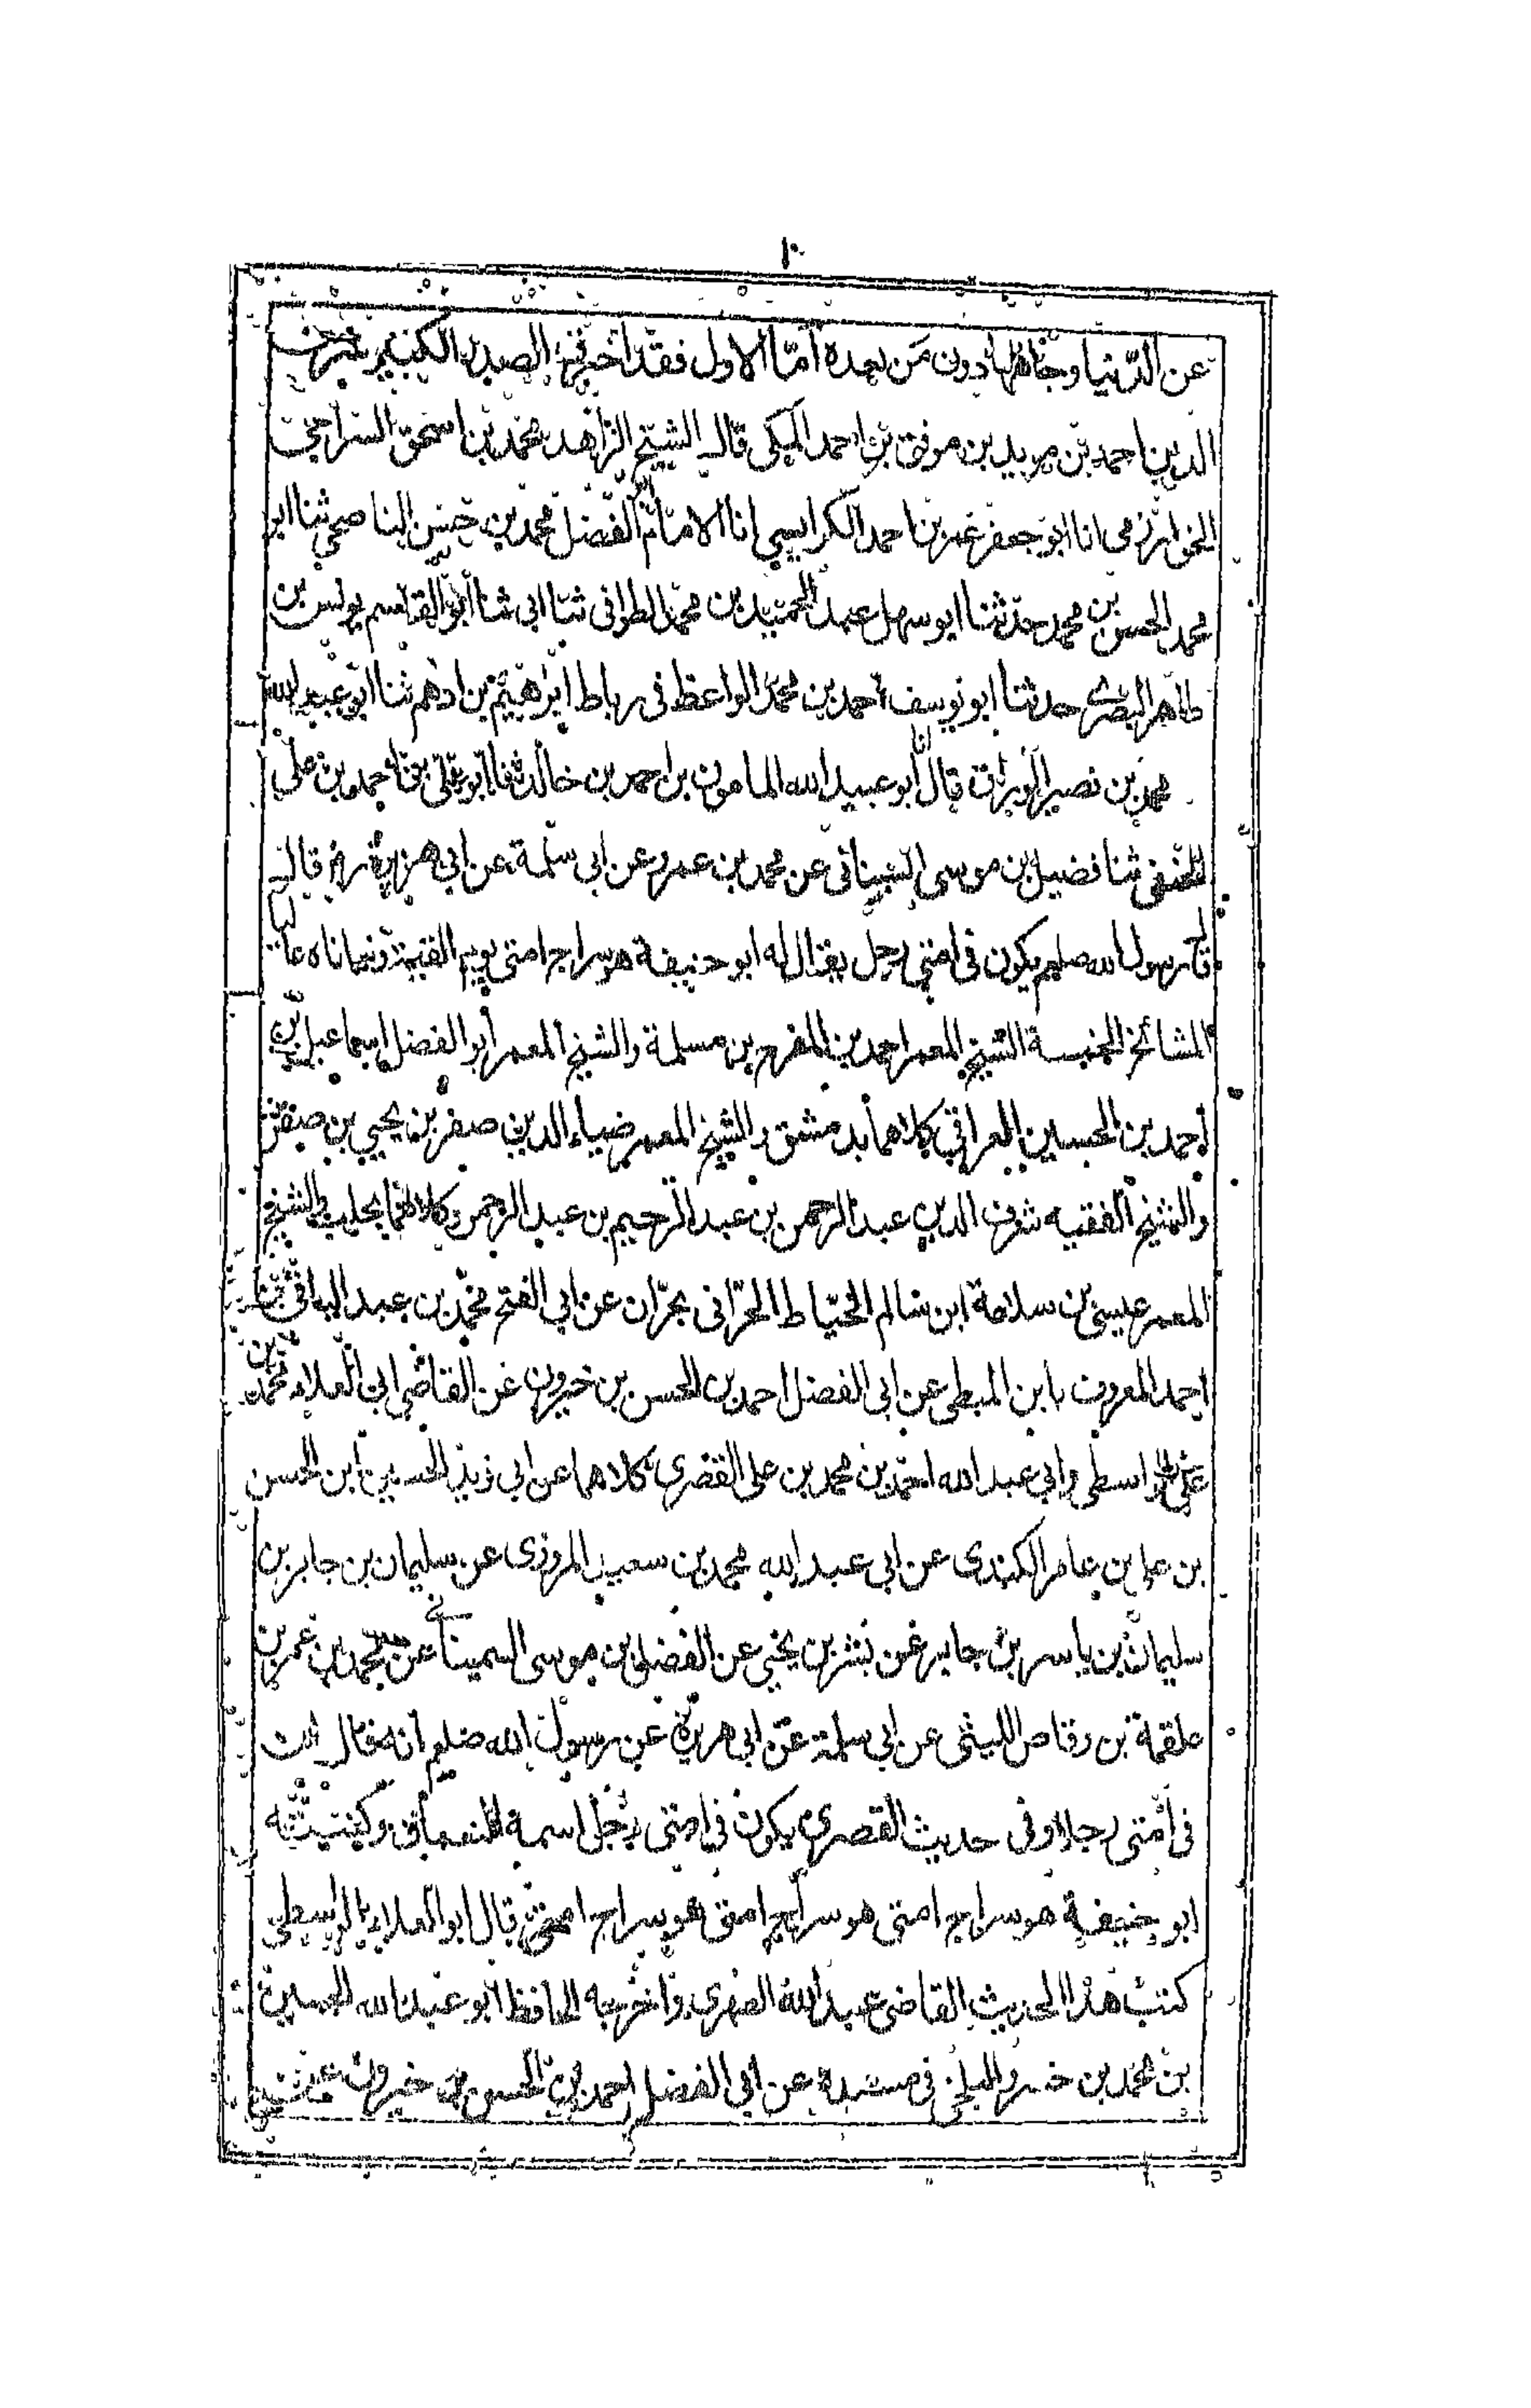 ١٠
عن الدنيا وجاهها دون من بعده اما الاول فقد اخبرني الصدر الكبير شرف
الدين احمد بن مويد بن موفق بن احمد المكي قال الشيخ الزاهد محمد بن اسحق السراجي
الخوارزمي انا ابو جعفر عمر بن احمد الكرابيسي انا الامام ابو الفضل محمد بن حسن الناصحي ثنا ابو
محمد الحسن بن محمد حدثنا ابو سهل عبد الحميد بن محمد الطوافي ثنا ابي ثنا ابو القاسم يونس بن
طاهر البصري حدثنا ابو يوسف احمد بن محمد الواعظ في رباط ابرهيم بن ادهم ثنا ابو عبد الله
محمد بن نصير الوراق قال ابو عبيد الله المامون بن احمد بن خالد ثنا ابو علي بن احمد بن علي
الحنفي ثنا فضيل بن موسى السيناني عن محمد بن عمرو عن ابي سلمة عن ابي هريرة رض قال
قال رسول الله صلعم يكون في امتي رجل يقال له ابو حنيفة هو سراج امتي يوم القيمة وانبانا عاليا
المشائخ الخمسة الشيخ المعمر احمد بن المفرج بن مسلمة والشيخ المعمر ابو الفضل اسماعيل بن
احمد بن الحسين العراقي كلاهما بدمشق والشيخ المعمر ضياء الدين صقر بن يحيى بن صقر
والشيخ الفقيه شرف الدين عبد الرحمن بن عبد الرحيم بن عبد الرحمن وكلاهما بحلب والشيخ
المعمر عيسى بن سلامة ابن سالم الخياط الحراني بحران عن ابي الفتح محمد بن عبد الباقي بن
احمد المعروف بابن البطي عن ابي الفضل احمد بن الحسن بن خيرون عن القاضي ابي العلاء محمد بن
علي الواسطي وابي عبد الله احمد بن محمد بن علي القصري كلاهما عن ابي زيد الحسين ابن الحسن
بن علي بن عامر الكندي عن ابي عبد الله محمد بن سعيد المروزي عن سليمان بن جابر بن
سليمان بن ياسر بن جابر عن بشر بن يحيى عن الفضل بن موسى السيناني عن محمد بن عمر بن
علقمة بن وقاص الليثي عن ابي سلمة عن ابي هريرة عن رسول الله صلعم انه قال ان
في امتي رجلا وفي حديث القصري يكون في امتي رجل اسمه النعمان وكنيته
ابو حنيفة هو سراج امتي هو سراج امتي هو سراج امتي قال ابو العلاء الواسطي
كتب هذا الحديث القاضي عبد الله الصهري واخرجه الحافظ ابو عبد الله الحسين
بن محمد بن خسرو البلخي في مسنده عن ابي الفضل احمد بن الحسن بن خيرون عن